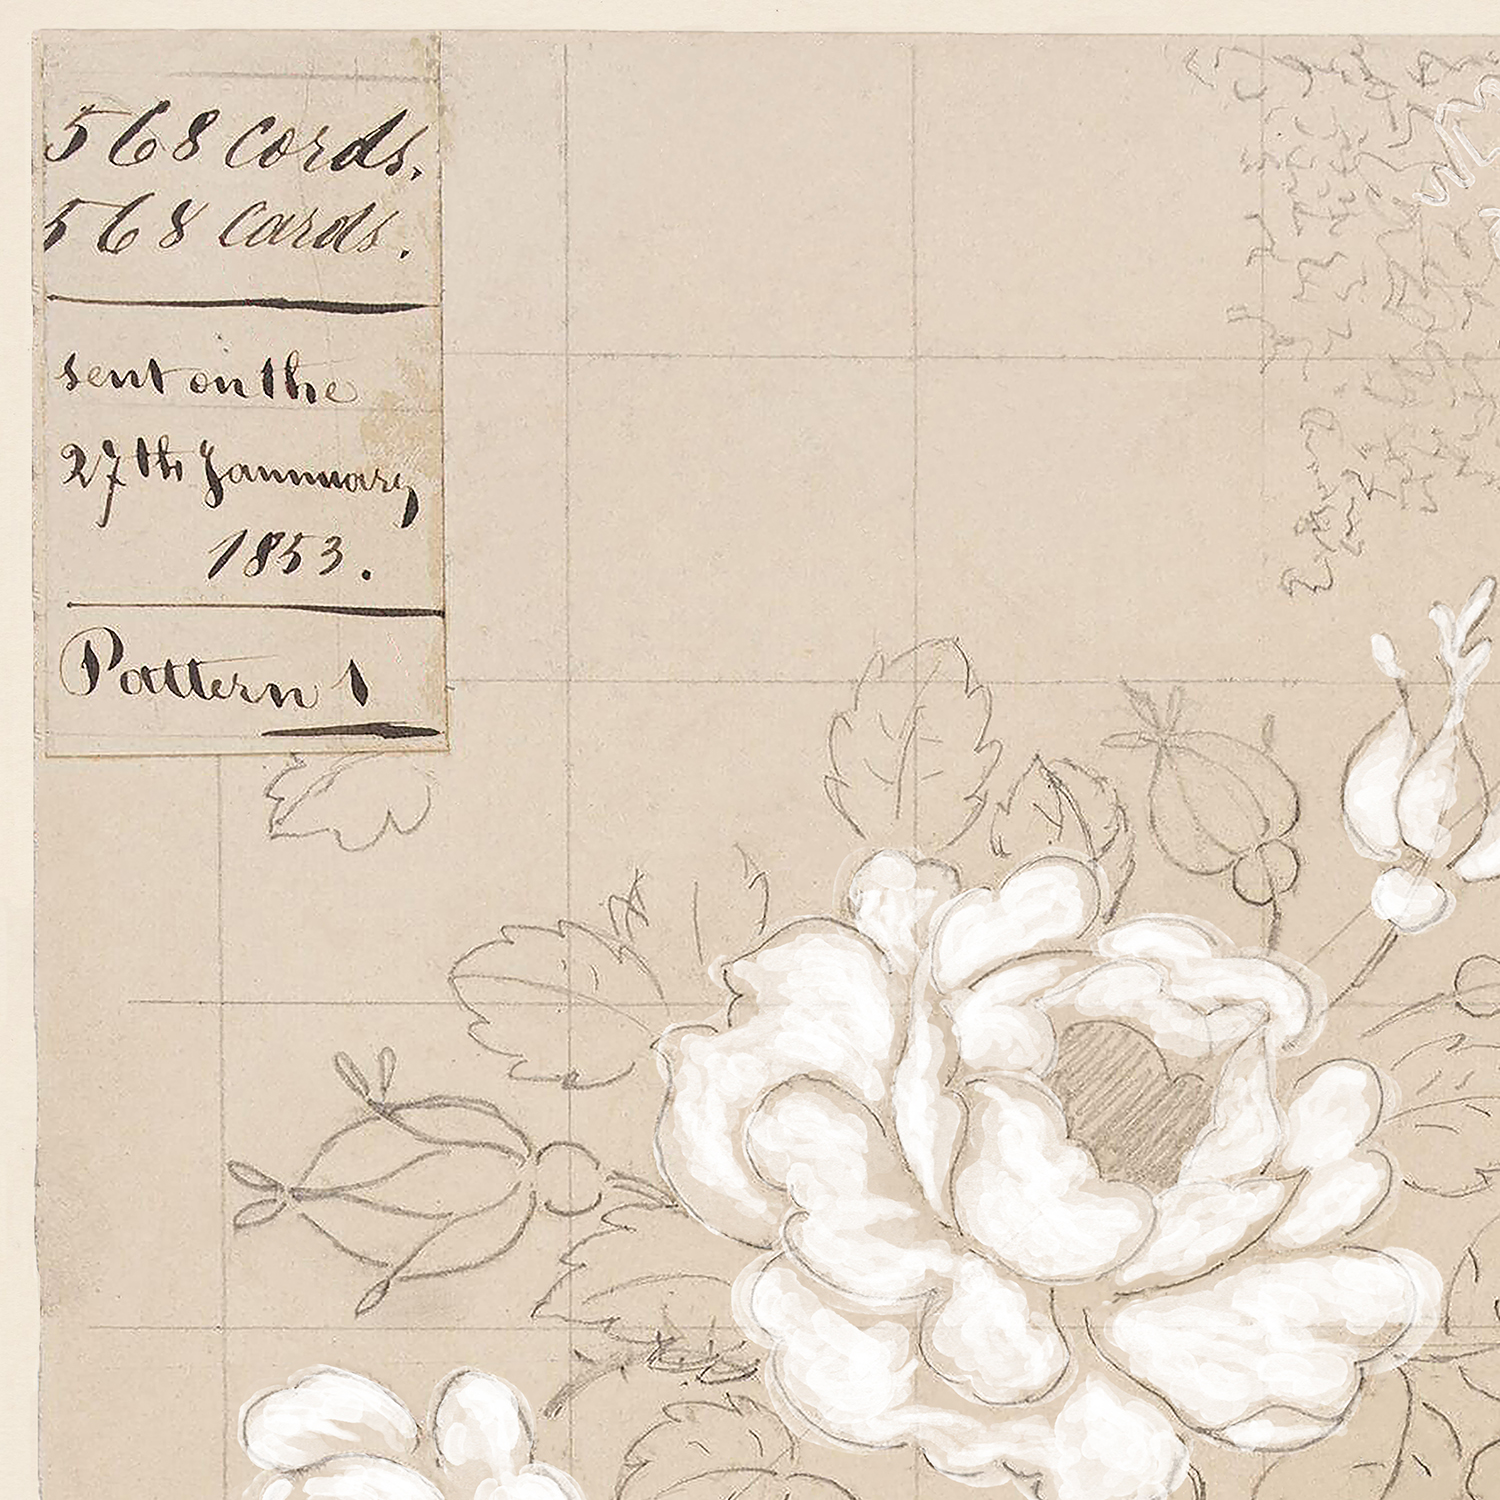 568 Cords.
568 Cards.
sent on the
27th Jannuary
1853.
Pattern 1